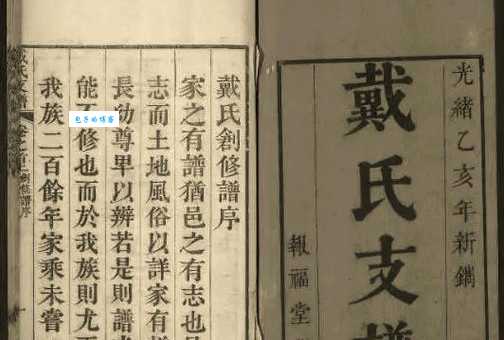 光緒乙亥年新鐫
戴氏支譜
報福堂
戴氏創修譜序
家之有譜猶邑之有志也
志而土地風俗以詳家有
長幼尊卑以辨若是則譜
能不修也而於我族則尤
我族二百餘年家乘未嘗
戴氏支譜 卷之首 創修譜序 一